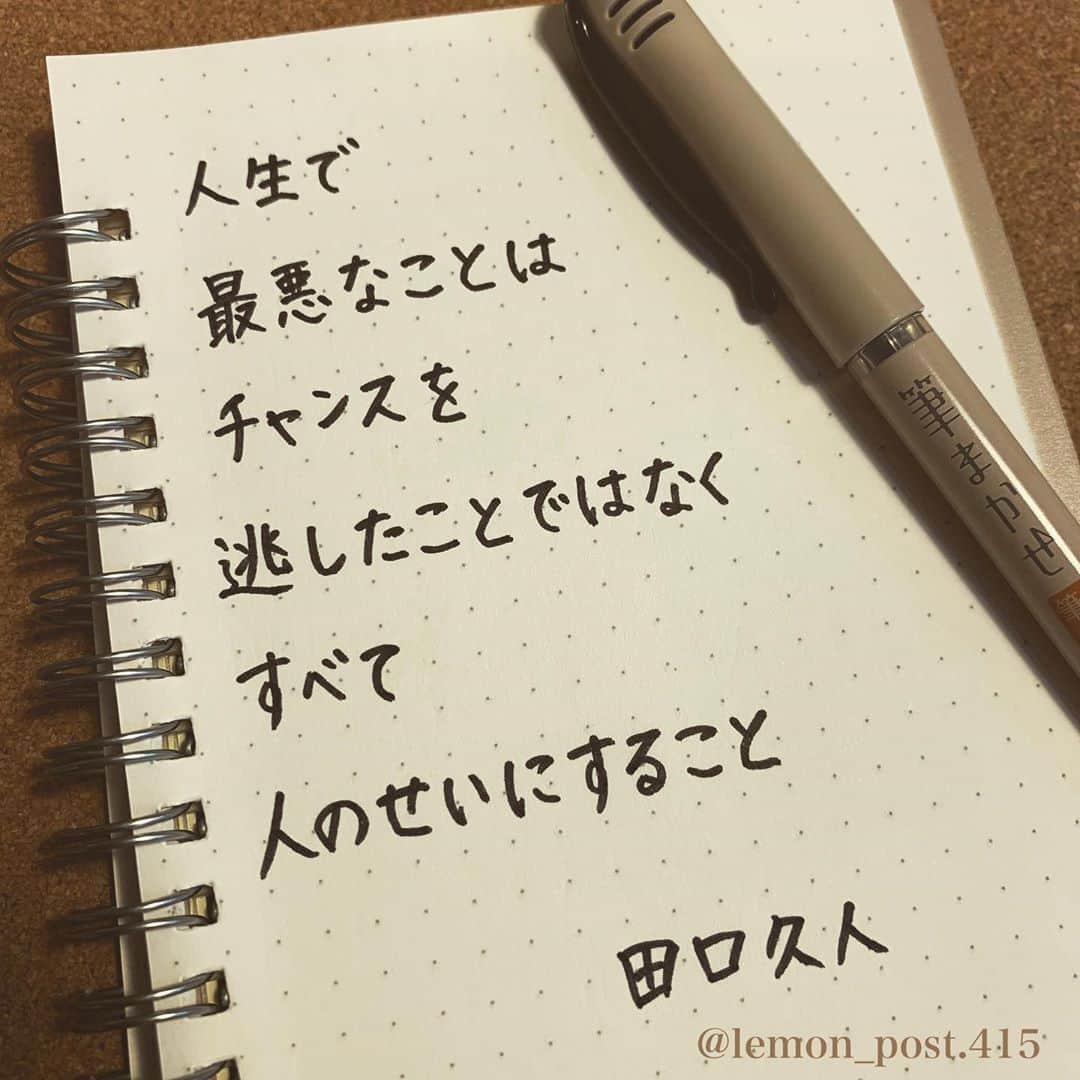 人生で
最悪なことは
チャンスを
逃したことではなく
すべて
人のせいにすること
田口久人
筆まかせ
@lemon_post.415